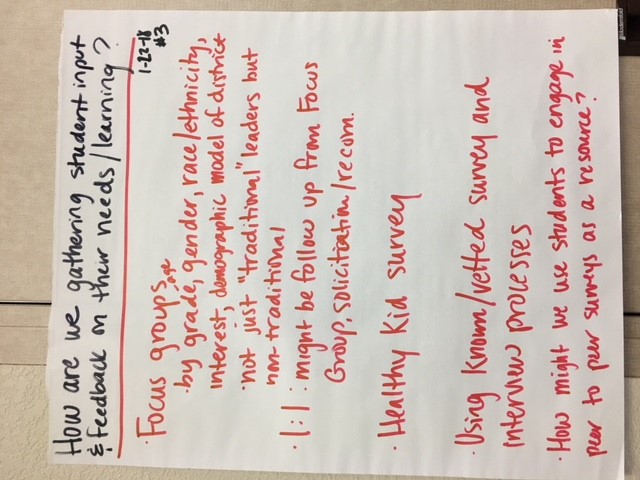 How are we gathering student input
& feedback on their needs/learning?
1-22-18
#3
· Focus groups
· by grade, age, gender, race/ethnicity,
interest, demographic model of district
· not just "traditional" leaders but
non-traditional
· 1:1 : might be follow up from Focus
Group, solicitiation/recom.
· Healthy Kid survey
· Using known/vetted survey and
interview processes
· How might we use students to engage in
peer to peer surveys as a resource?